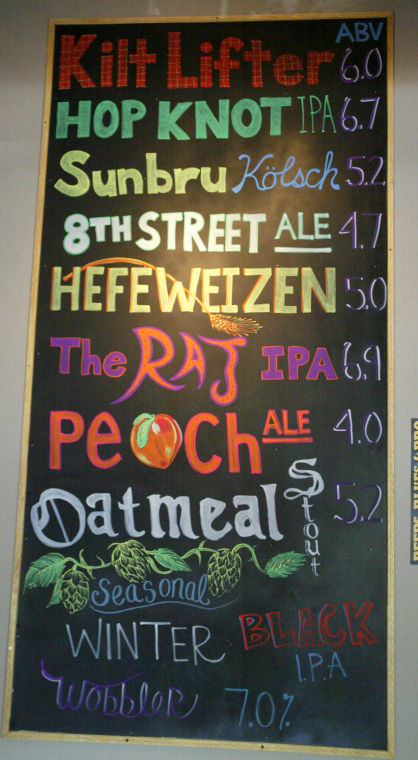 ABV
Kilt Lifter 6.0
HOP KNOT IPA 6.7
Sunbru Kölsch 5.2
8TH STREET ALE 4.7
HEFEWEIZEN 5.0
The RAJ IPA 6.9
PEACH ALE 4.0
Oatmeal Stout 5.2
Seasonal
WINTER BLACK
I.P.A
Wobbler 7.0%